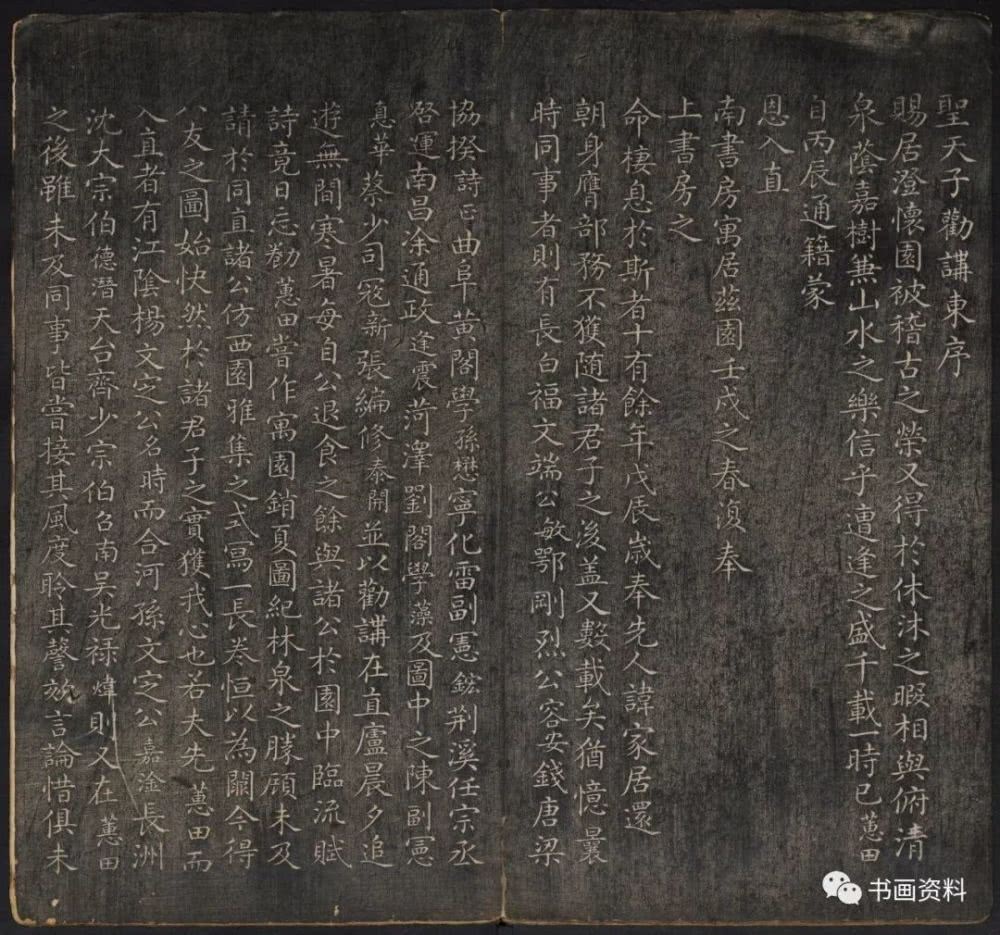 聖天子勸講東序
賜居澄懷園被稽古之榮又得於休沐之暇相與俯清
泉蔭嘉樹兼山水之樂信乎遭逢之盛千載一時已蕙田
自丙辰通籍蒙
恩入直
南書房寓居茲園壬戌之春復奉
上書房之
命棲息於斯者十有餘年戊辰歲奉先人諱家居還
朝身膺部務不獲随諸君子之後盖又數載矣猶憶曩
時同事者則有長白福文端公敏鄂剛烈公容安錢唐梁
協揆詩正曲阜黃閣學孫懋寧化雷副憲鋐荆溪任宗丞
啓運南昌涂通政逢震菏澤劉閣學藻及圖中之陳副憲
悳華蔡少司寇新張編修泰開並以勸講在直廬晨夕追
遊無間寒暑每自公退食之餘與諸公於園中臨流賦
詩竟日忘勌蕙田嘗作寓園銷夏圖紀林泉之勝顧未及
請於同直諸公仿西園雅集之式寫一長卷恒以為闕今得
八友之圖始快然於諸君子之實獲我心也若夫先蕙田而
入直者有江陰楊文定公名時而合河孫文定公嘉淦長洲
沈大宗伯德潛天台齊少宗伯召南吴光禄煒則又在蕙田
之後雖未及同事皆嘗接其風度聆其謦欬言論惜俱未
书画资料